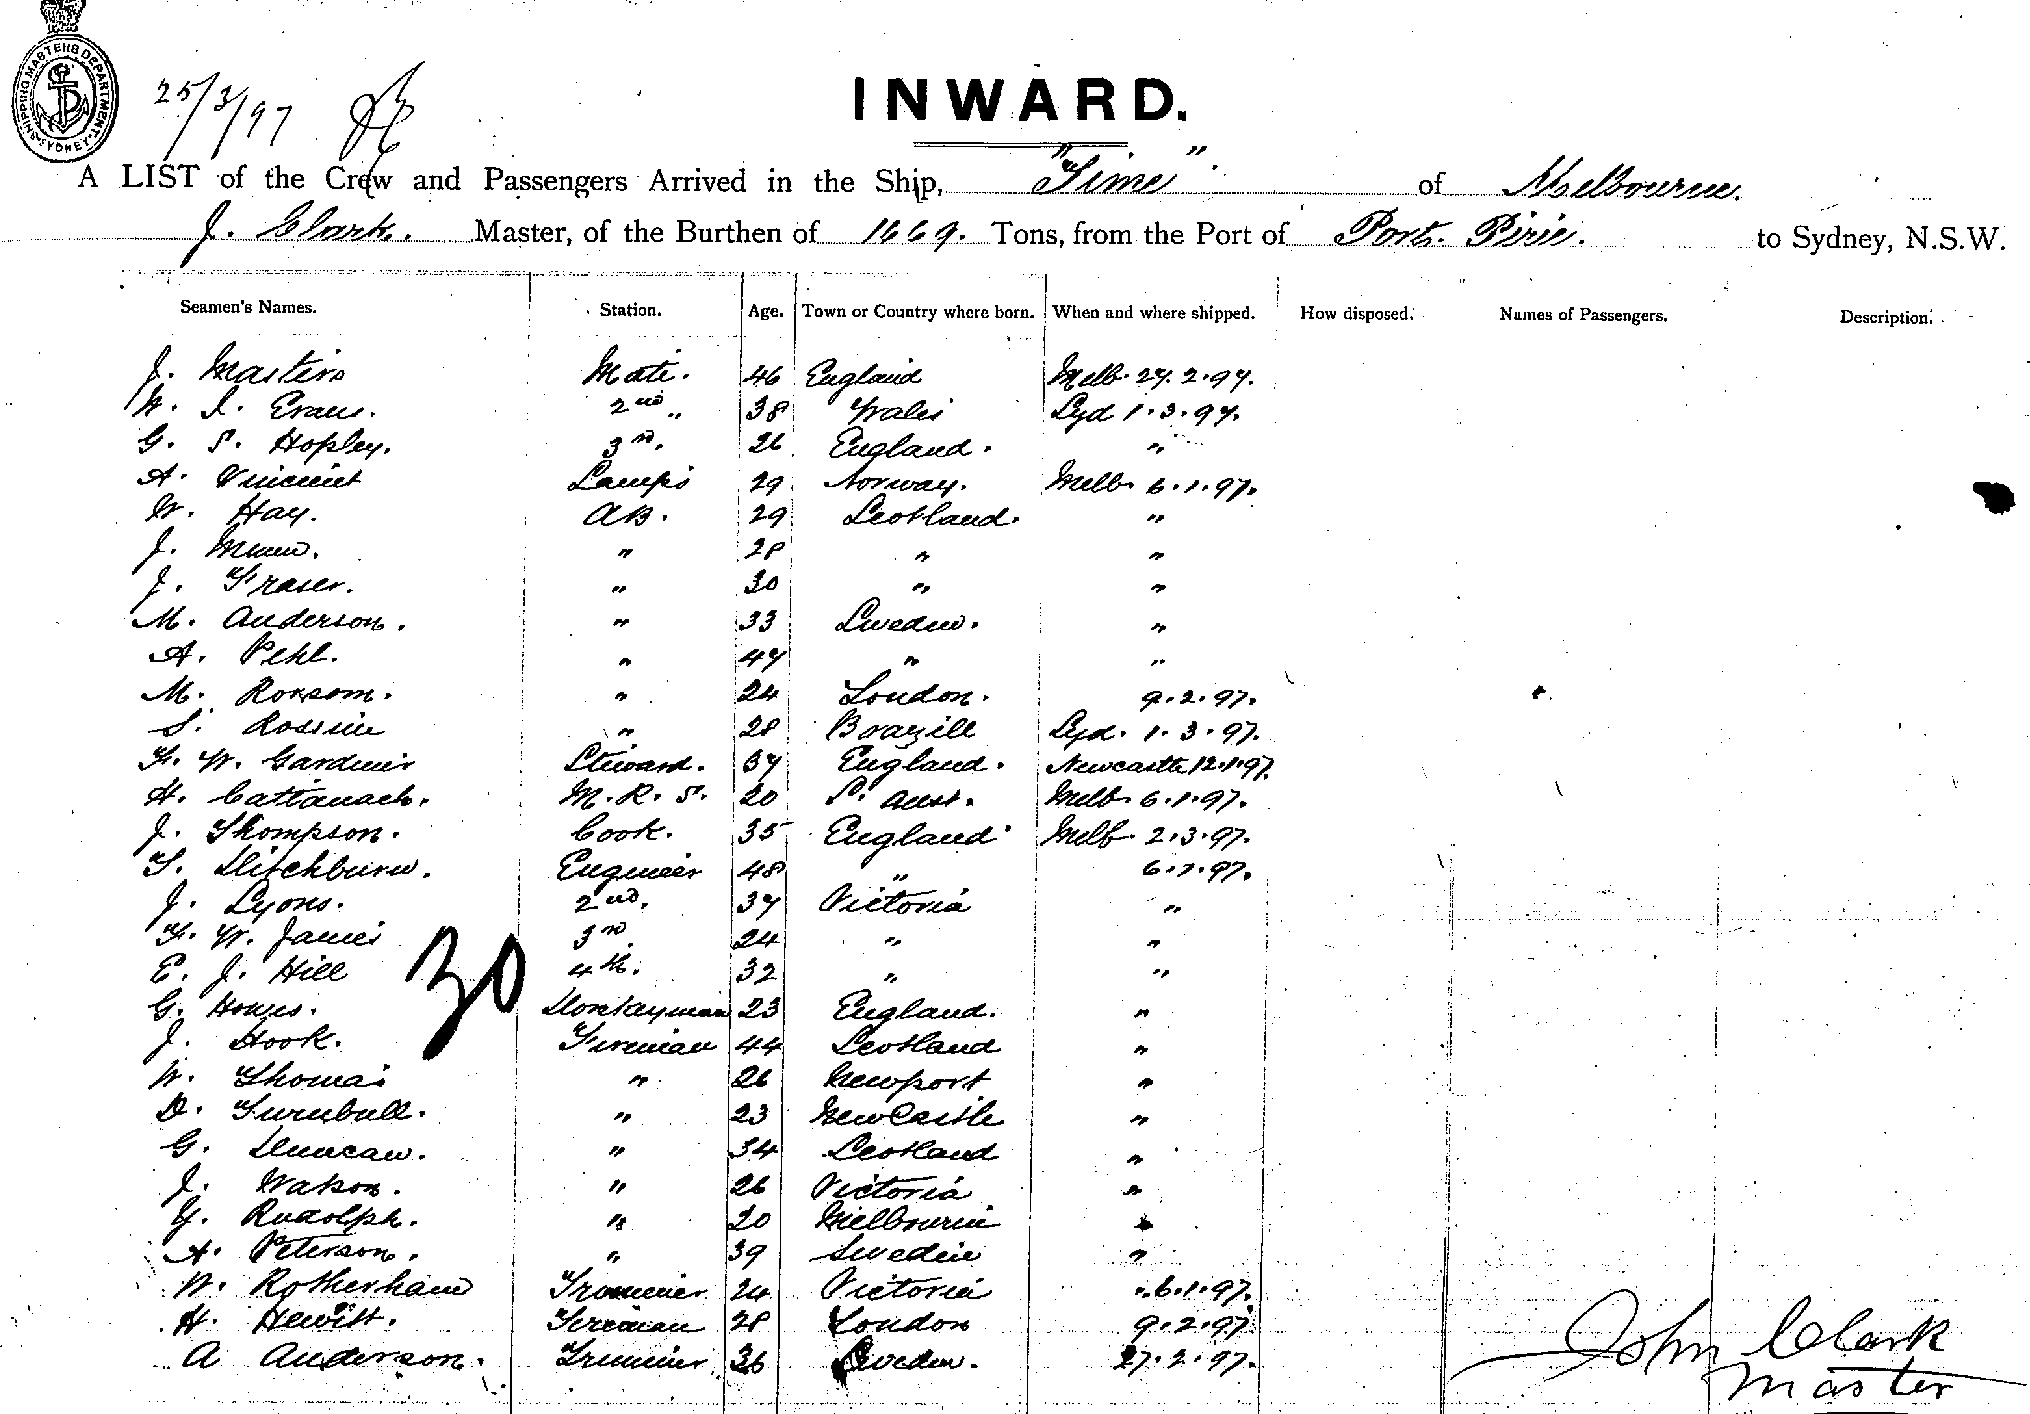 SHIPPING MASTERS DEPARTMENT. SYDNEY
25/3/97
INWARD.
A LIST of the Crew and Passengers Arrived in the Ship, "Time" of Melbourne.
J. Clark. Master, of the Burthen of 1669. Tons, from the Port of Port. Pirie. to Sydney, N.S.W.
Seamen's Names. Station. Age. Town or Country where born. When and where shipped. How disposed. Names of Passengers. Description.
J. Masters Mate. 46 England Melb. 27.2.97.
W. I. Evans. 2nd „ 38 Wales Syd 1.3.97.
G. S. Hopley. 3rd. 26 England. „
A. Vincent Lamps 29 Norway. Melb. 6.1.97.
W. Hay. AB. 29 Scotland. „
J. Munn. „ 28 „ „
J. Fraser. „ 30 „ „
M. Anderson. „ 33 Sweden. „
A. Pehl. „ 47 „ „
M. Roxsom. „ 24 London. 9.2.97.
S. Rossine „ 28 Brazill Syd. 1.3.97.
F. W. Gardner Steward. 37 England. Newcastle 12.1.97
H. Cattanach. M.R.S. 20 S. Aust. Melb. 6.1.97.
J. Thompson. Cook. 35 England Melb. 2.3.97.
T. Ditchburn. Engineer 48 „ 6.1.97.
J. Lyons. 2nd. 37 Victoria „
F. W. James 3rd 24 „ „
E. J. Hill 4th. 32 „ „
30
G. Howes. Donkeyman 23 England. „
J. Hook. Fireman 44 Scotland „
W. Thomas „ 26 Newport „
D. Turnbull. „ 23 NewCastle „
G. Duncan. „ 34 Scotland „
J. Watson. „ 26 Victoria „
Y. Rudolph. „ 20 Melbourne „
A. Peterson. „ 39 Sweden „
W. Rotherham Trimmer 24 Victoria „ 6.1.97.
H. Hewitt. Fireman 28 London 9.2.97.
A Anderson. Trimmer 36 Sweden. 27.2.97.
John Clark
Master